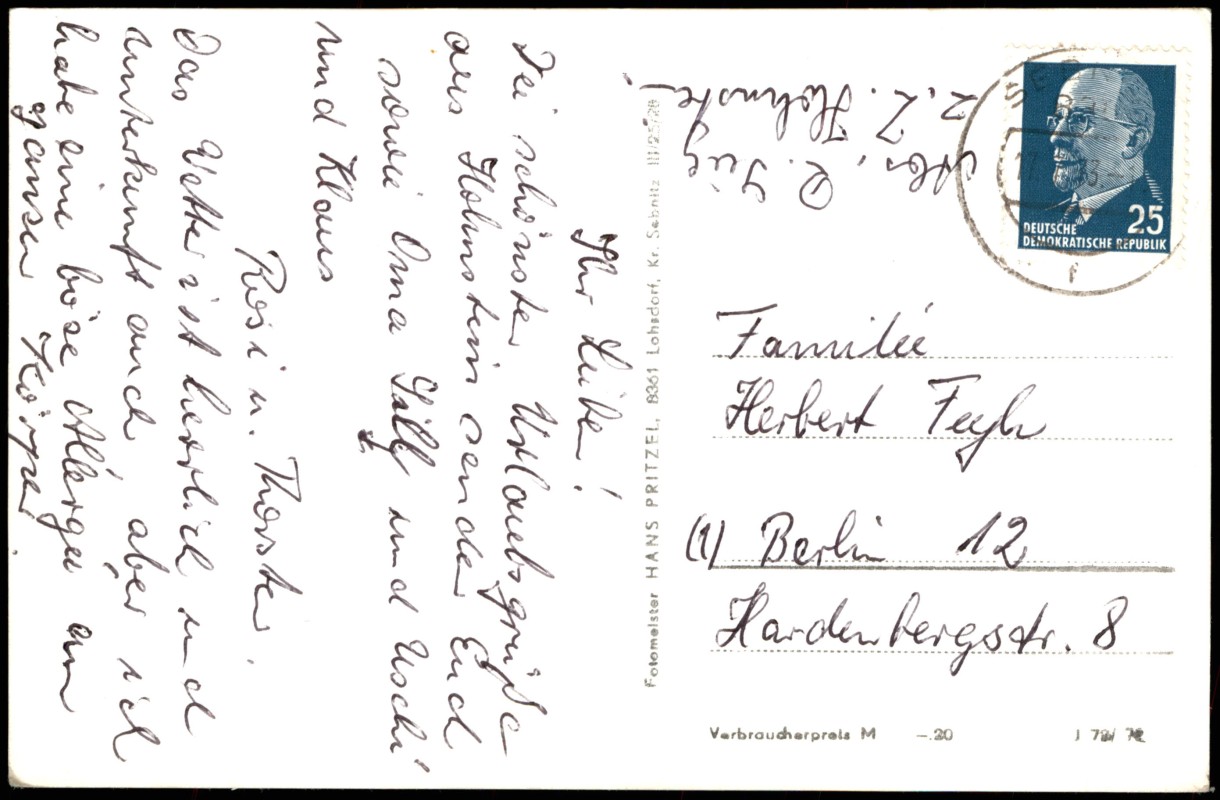 Ihr Lieben!
Die schönsten Urlaubsgrüße
aus Hohnstein senden Euch
sowie Oma Sülz und Uschi
und Klaus
Rosi u. Thorsten.
Das Wetter ist herrlich und
Unterkunft auch aber ich
habe eine böse Allergie am
ganzen Körper.
Abs.
z. Z. Hohnstein
Fotomeister HANS PRITZEL, 8361 Lohsdorf, Kr. Sebnitz III/25/28
DEUTSCHE
DEMOKRATISCHE REPUBLIK
25
Familie
Herbert
(1) Berlin 12
Hardenbergstr. 8
Verbraucherpreis M —.20